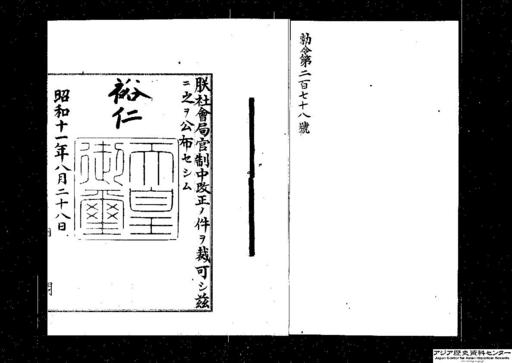 勅令第二百七十八號
朕社會局官制中改正ノ件ヲ裁可シ茲
ニ之ヲ公布セシム
裕仁
天皇
御璽
昭和十一年八月二十八日
アジア歴史資料センター
Japan Center for Asian Historical Records